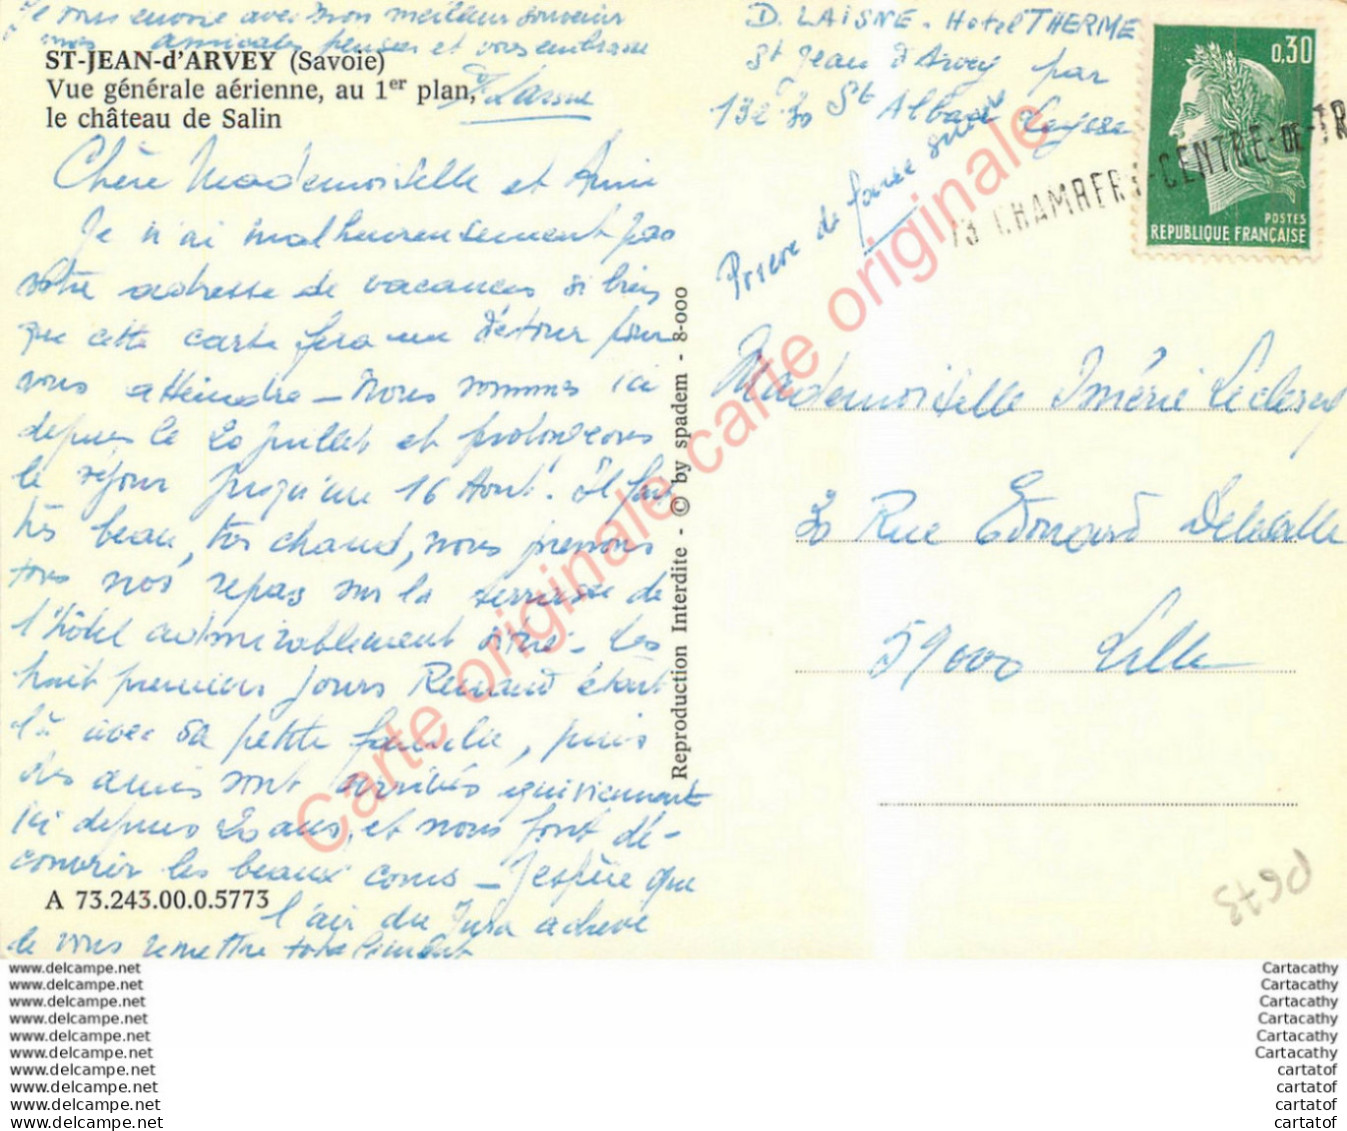 Je vous envoie avec mon meilleur souvenir
mes amicales pensées et vous embrasse
D. Laisne
ST-JEAN-d'ARVEY (Savoie)
Vue générale aérienne, au 1er plan,
le château de Salin
Chère Mademoiselle et Amie
Je n'ai malheureusement pas
votre adresse de vacances si bien
que cette carte fera un détour pour
vous atteindre - Nous sommes ici
depuis le 20 juillet et prolongeons
le séjour jusqu'au 16 Août. Il fait
très beau, très chaud, nous prenons
tous nos repas sur la terrasse de
l'hôtel admirablement situé - Les
huit premiers jours Renaud était
là avec sa petite famille, puis
des amis sont arrivés qui viennent
ici depuis 20 ans, et nous font dé-
couvrir les beaux coins - J'espère que
l'air du Jura achève
de vous remettre totalement
A 73.243.00.0.5773
Reproduction Interdite - © by spadem - 8-000
D. LAISNE - Hotel THERME
St Jean d'Arvey par
73230 St Alban Leysse
Prière de faire suivre
0,30
POSTES
REPUBLIQUE FRANÇAISE
73 CHAMBERY-CENTRE-DE-TR
Mademoiselle Imérie Leclercq
20 Rue Edouard Delesalle
59000 Lille
PG73
Carte originale carte originale
www.delcampe.net
www.delcampe.net
www.delcampe.net
www.delcampe.net
www.delcampe.net
www.delcampe.net
www.delcampe.net
www.delcampe.net
www.delcampe.net
www.delcampe.net
Cartacathy
Cartacathy
Cartacathy
Cartacathy
Cartacathy
Cartacathy
cartatof
cartatof
cartatof
cartatof